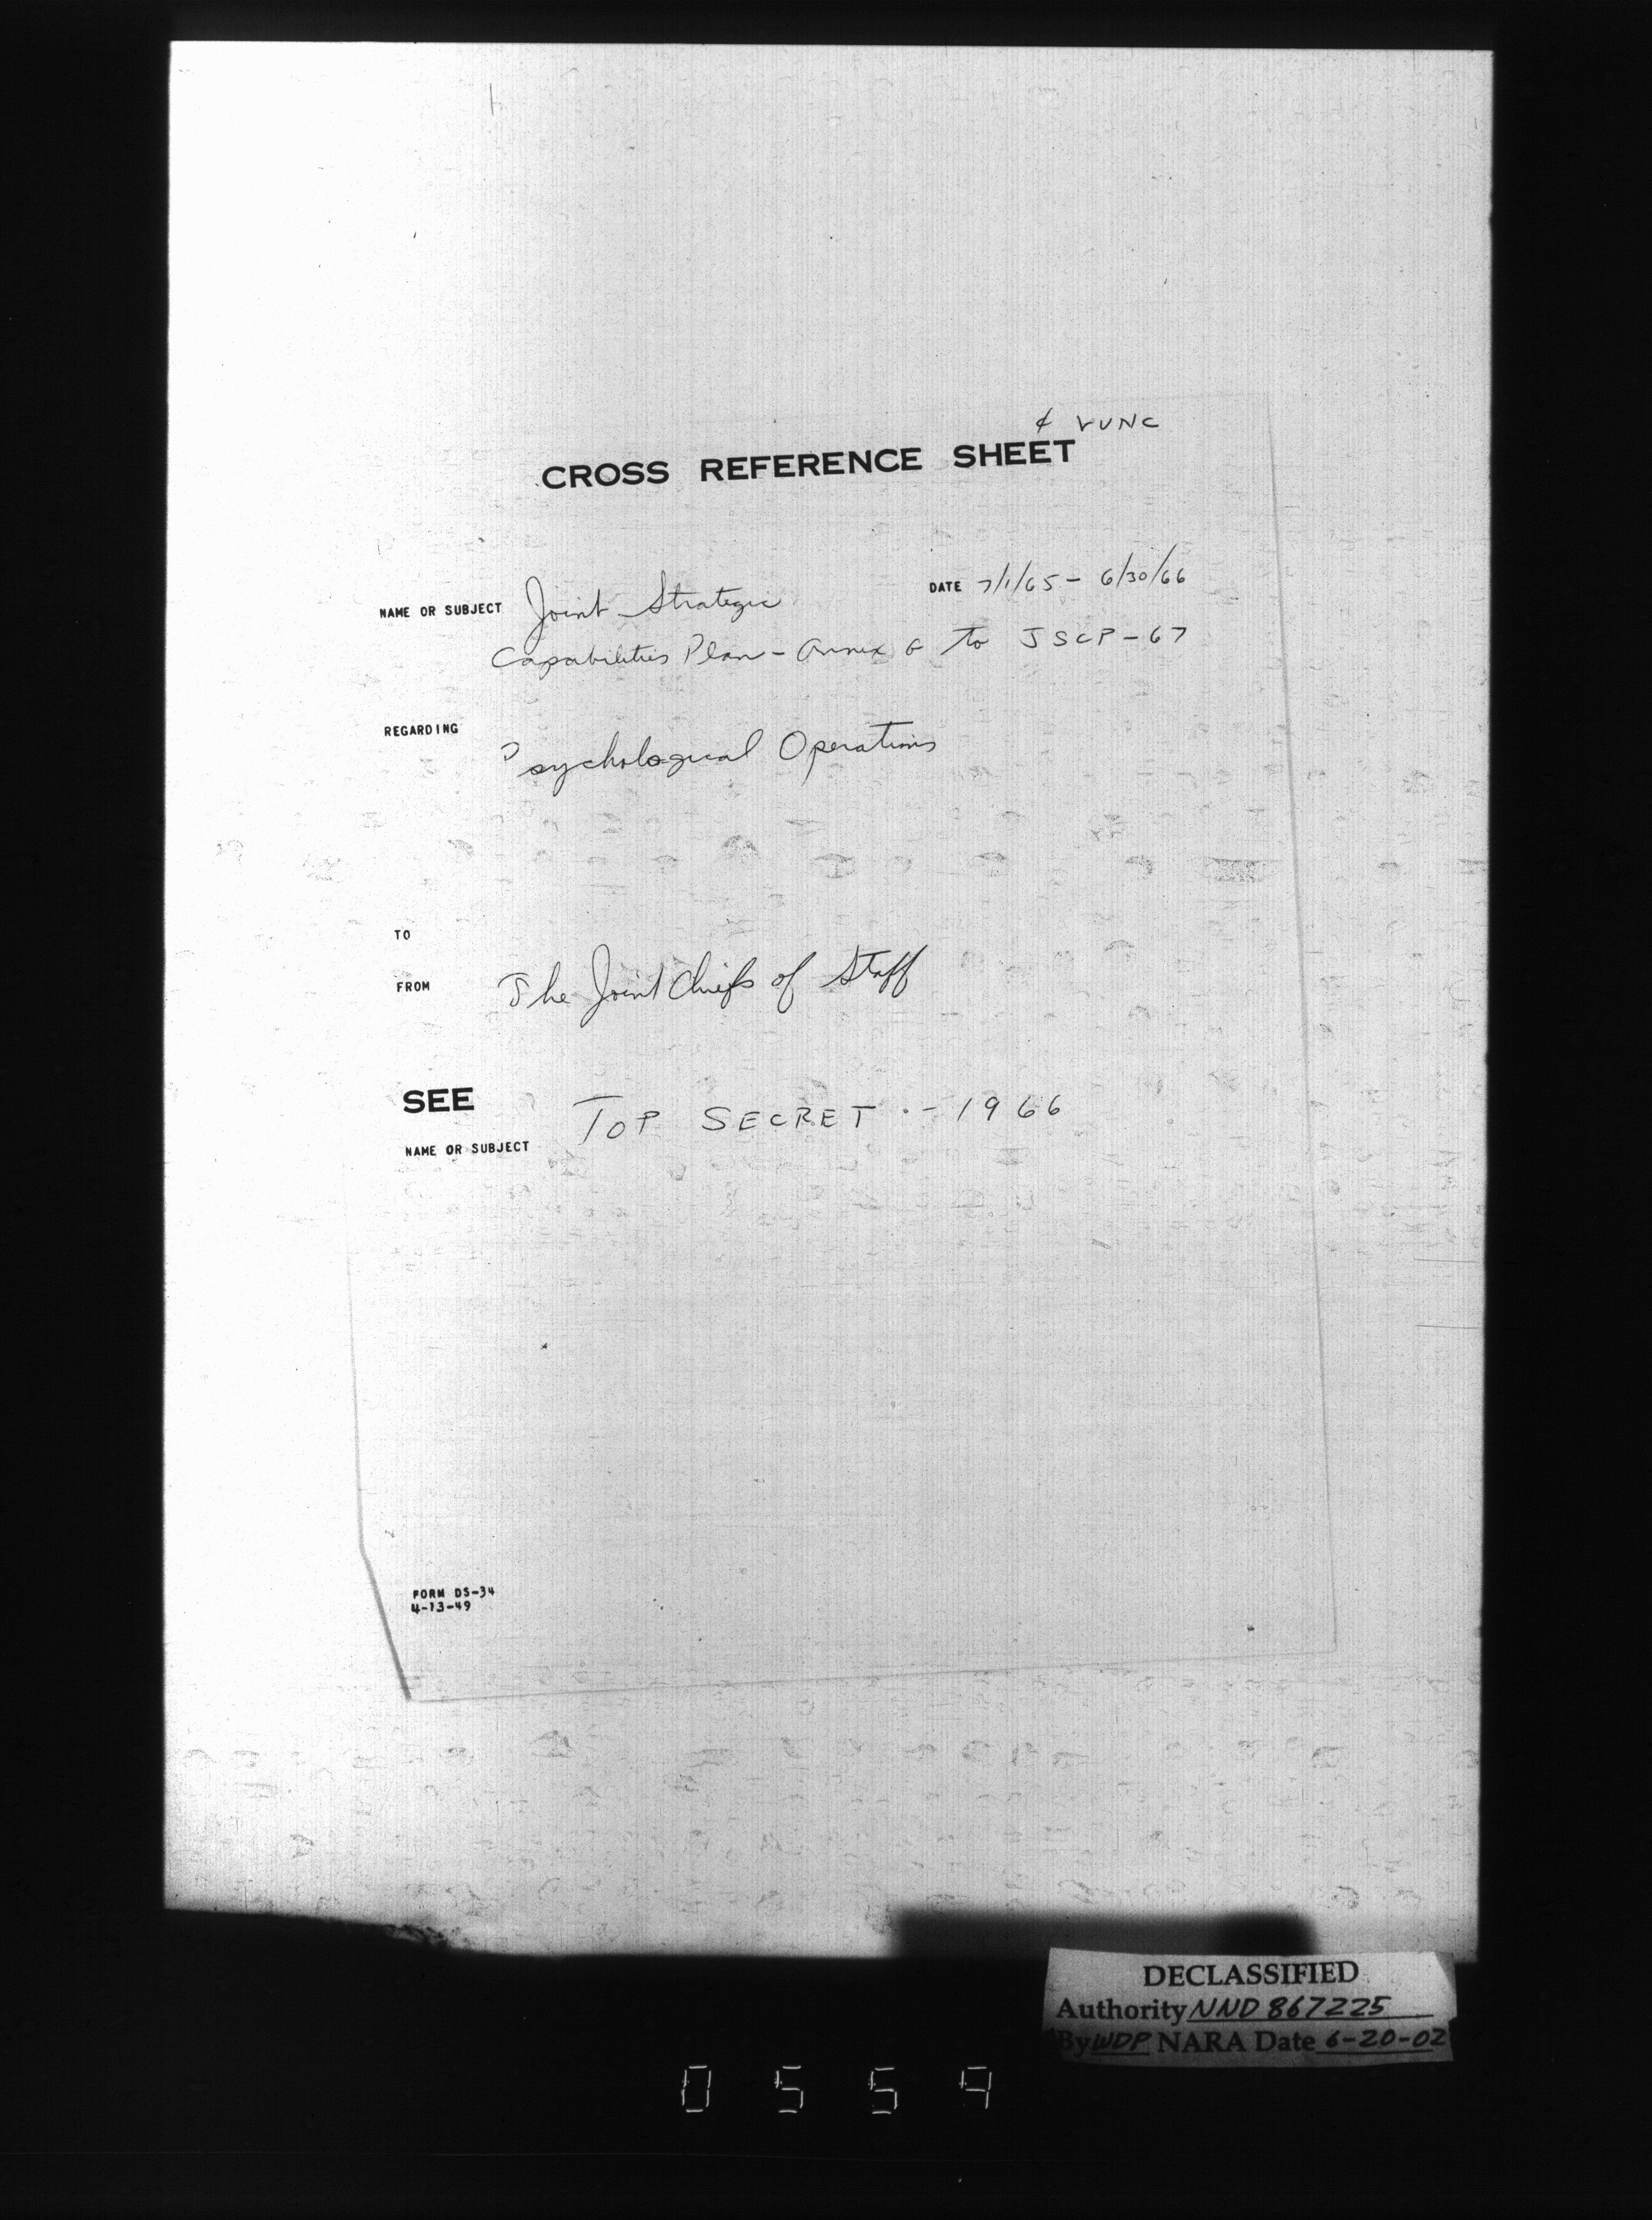 CROSS REFERENCE SHEET
DATE 7/1/65 - 6/30/66
NAME OR SUBJECT Joint Strategic
Capabilities Plan - Annex G to JSCP-67
REGARDING
Psychological Operations
TO
FROM The Joint Chiefs of Staff
SEE
TOP SECRET - 1966
NAME OR SUBJECT
FORM DS-34
4-13-49
DECLASSIFIED
Authority NND 867225
By WDP NARA Date 6-20-02
0559